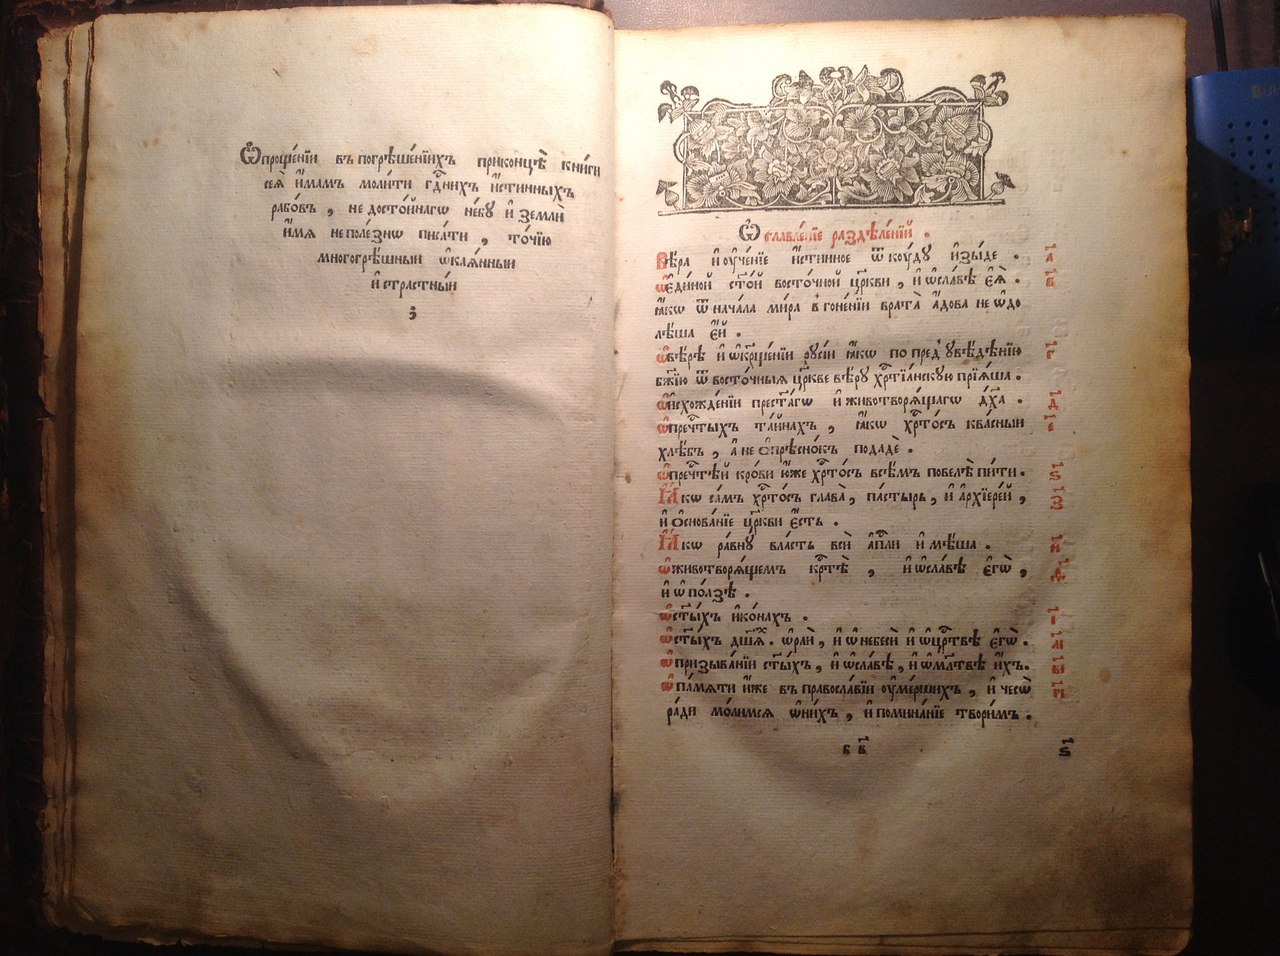 Ѽпроще́нїи въ погрѣше́нїихъ приконцѣ̀ кни́ги
сеѧ̀ и҆́мамъ моли́ти гдⷭ҇нихъ и҆́стинныхъ
рабо́въ , не досто́йнагѡ не́бꙋ и҆ землѝ
и҆́мѧ неполе́знѡ писа́ти , то́чїю
многогрѣ́шныи ѡ҆каѧ́нныи
и҆ стра́стныи
;
Ѽглавле́нїе раздѣле́нїй .
Вѣ́ра и҆ ᲂу҆че́нїе и҆́стинное ѿ коꙋ́дꙋ и҆зы́де . а҃
ѡ҆ є҆ди́ной ст҃о́й восто́чной цр҃кви , и҆ ѡ҆сла́вѣ є҆ѧ̀ . в҃
ꙗ҆́кѡ ѿ нача́ла ми́ра в̾ гоне́нїи врата̀ а҆́дова не ѡ҆до
лѣ́ша є҆́й .
ѡ҆ вѣ́рѣ и҆ ѡ҆ кр҃ще́нїи рꙋсі́и ꙗ҆́кѡ по пред̾ ᲂувѣ́дѣнїю г҃
бж҃їю ѿ восто́чныѧ цр҃кве вѣ́рꙋ хрⷭ҇тїа́нскꙋю прїѧ́ша .
ѡ҆ и҆схожде́нїи прест҃а́гѡ и҆ животворѧ́щагѡ дх҃а . д҃
ѡ҆ пречⷭ҇тыхъ та́инахъ , ꙗ҆́кѡ хрⷭ҇то́съ ква́сныи е҃
хлѣ́бъ , а҆ не ѻ҆прѣсно́къ подадѐ .
ѡ҆ пречⷭ҇тѣй кро́ви ю҆́же хрⷭ҇то́съ всѣ́мъ повелѣ̀ пи́ти . ѕ҃
Ꙗ҆́кѡ са́мъ хрⷭ҇то́съ глава̀ , па́стырь , и҆ а҆рхїере́й , з҃
и҆ ѻ҆снова́нїе цр҃кви є҆́сть .
Ꙗ҆́кѡ ра́внꙋ вла́сть всѝ а҆пⷭ҇ли и҆ мѣ́ша . и҃
ѡ҆ животворѧ́щемъ крⷭ҇тѣ̀ , и҆ ѡ҆сла́вѣ є҆гѡ̀ , ѳ҃
и҆ ѡ҆ по́лзѣ .
ѡ҆ ст҃ы́хъ и҆ко́нахъ . і҃
ѡ҆ ст҃ы́хъ дш҃ахъ . ѡ҆ раѝ , и҆ ѡ҆ небесѝ и҆ ѡ҆ црⷭ҇твѣ є҆гѡ̀ . а҃і
ѡ҆ призыва́нїи ст҃ы́хъ , и҆ ѡ҆сла́вѣ , и҆ ѡ҆ мл҃твѣ и҆́хъ . в҃і
ѡ҆ па́мѧти и҆́же въ правосла́вїи ᲂу҆ме́ршихъ , и҆ чесѡ̀ г҃і
ра́ди мо́лимсѧ ѡ҆ни́хъ , и҆ помина́нїе твори́мъ .
в҃ ѕ҃